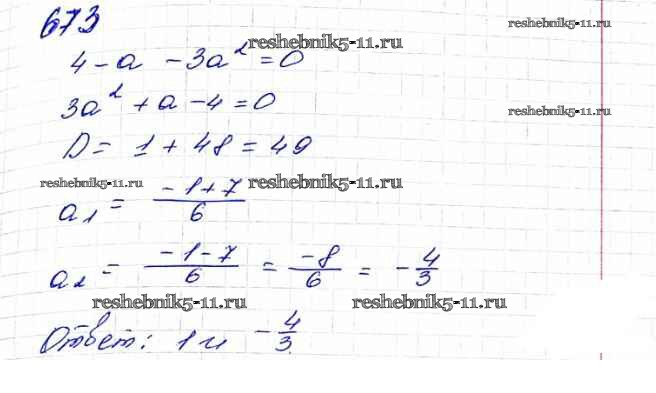 673
4 - a - 3a² = 0
reshebnik5-11.ru
reshebnik5-11.ru
3a² + a - 4 = 0
reshebnik5-11.ru
D = 1 + 48 = 49
reshebnik5-11.ru
reshebnik5-11.ru
reshebnik5-11.ru
a₁ = (-1+7)/6
a₂ = (-1-7)/6 = -8/6 = -4/3
reshebnik5-11.ru
reshebnik5-11.ru
Ответ: 1 и -4/3